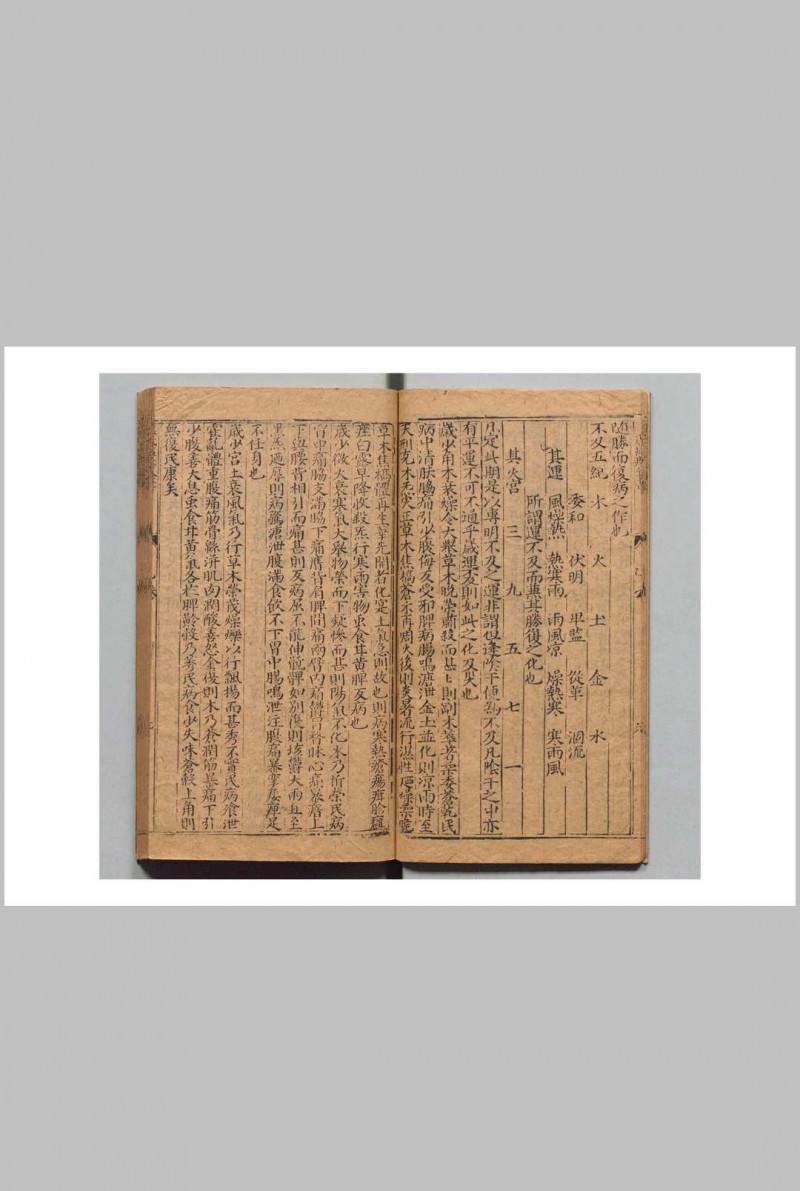 隨勝而復病之作也
不及五紀 木 火 土 金 水
委和 伏明 卑監 從革 涸流
其運 風燥熱 熱寒雨 雨風涼 燥熱寒 寒雨風
所謂運不及而兼其勝復之化也
其災宮 三 九 五 七 一
定此期是以專明不及之運非謂但逢陰干便為不及凡陰干之中亦
有平運不可不通乎歲運交則如此之化及矣也
歲少角木衰燥令大舉草木晚榮肅殺而甚上則副木草菩柔委蒼乾民
病中清胠脇痛引少腹侮反受邪脾病腸鳴溏泄金土並化則涼雨時至
天刑克木 正草木焦槁蒼 再周火後則炎暑流行濕性
草木焦槁體再生華先開者化寔土氣急則故也則病寒熱瘡瘍疿胗癰
痤白露早降收殺炁行寒雨害物虫食甘黃脾反病也
歲少徵火衰寒氣大舉物榮而下凝慘而甚則陽氣不化木乃折榮民病
胷中痛脇支滿脇下痛膺背肩胛間痛兩臂內痛鬱冒矇昧心痛暴瘖上
下與腰背相引而痛甚則反病屈不能伸髖髀如別復則埃鬱大雨且至
黑炁過辱則病騖溏泄腹滿食飲不下胃中腸鳴泄注腹痛暴攣痿痺足
不任身也
歲少宮土衰風氣乃行草木榮茂燥爍以行飄揚而甚秀不實民病飧泄
霍亂體重腹痛筋骨繇併肌肉潤酸善怒金後則木乃蒼潤筋暴痛下引
少腹善大息虫食甘黃氣客於脾黔穀乃秀民病食少失味蒼穀上角則
無復民康矣